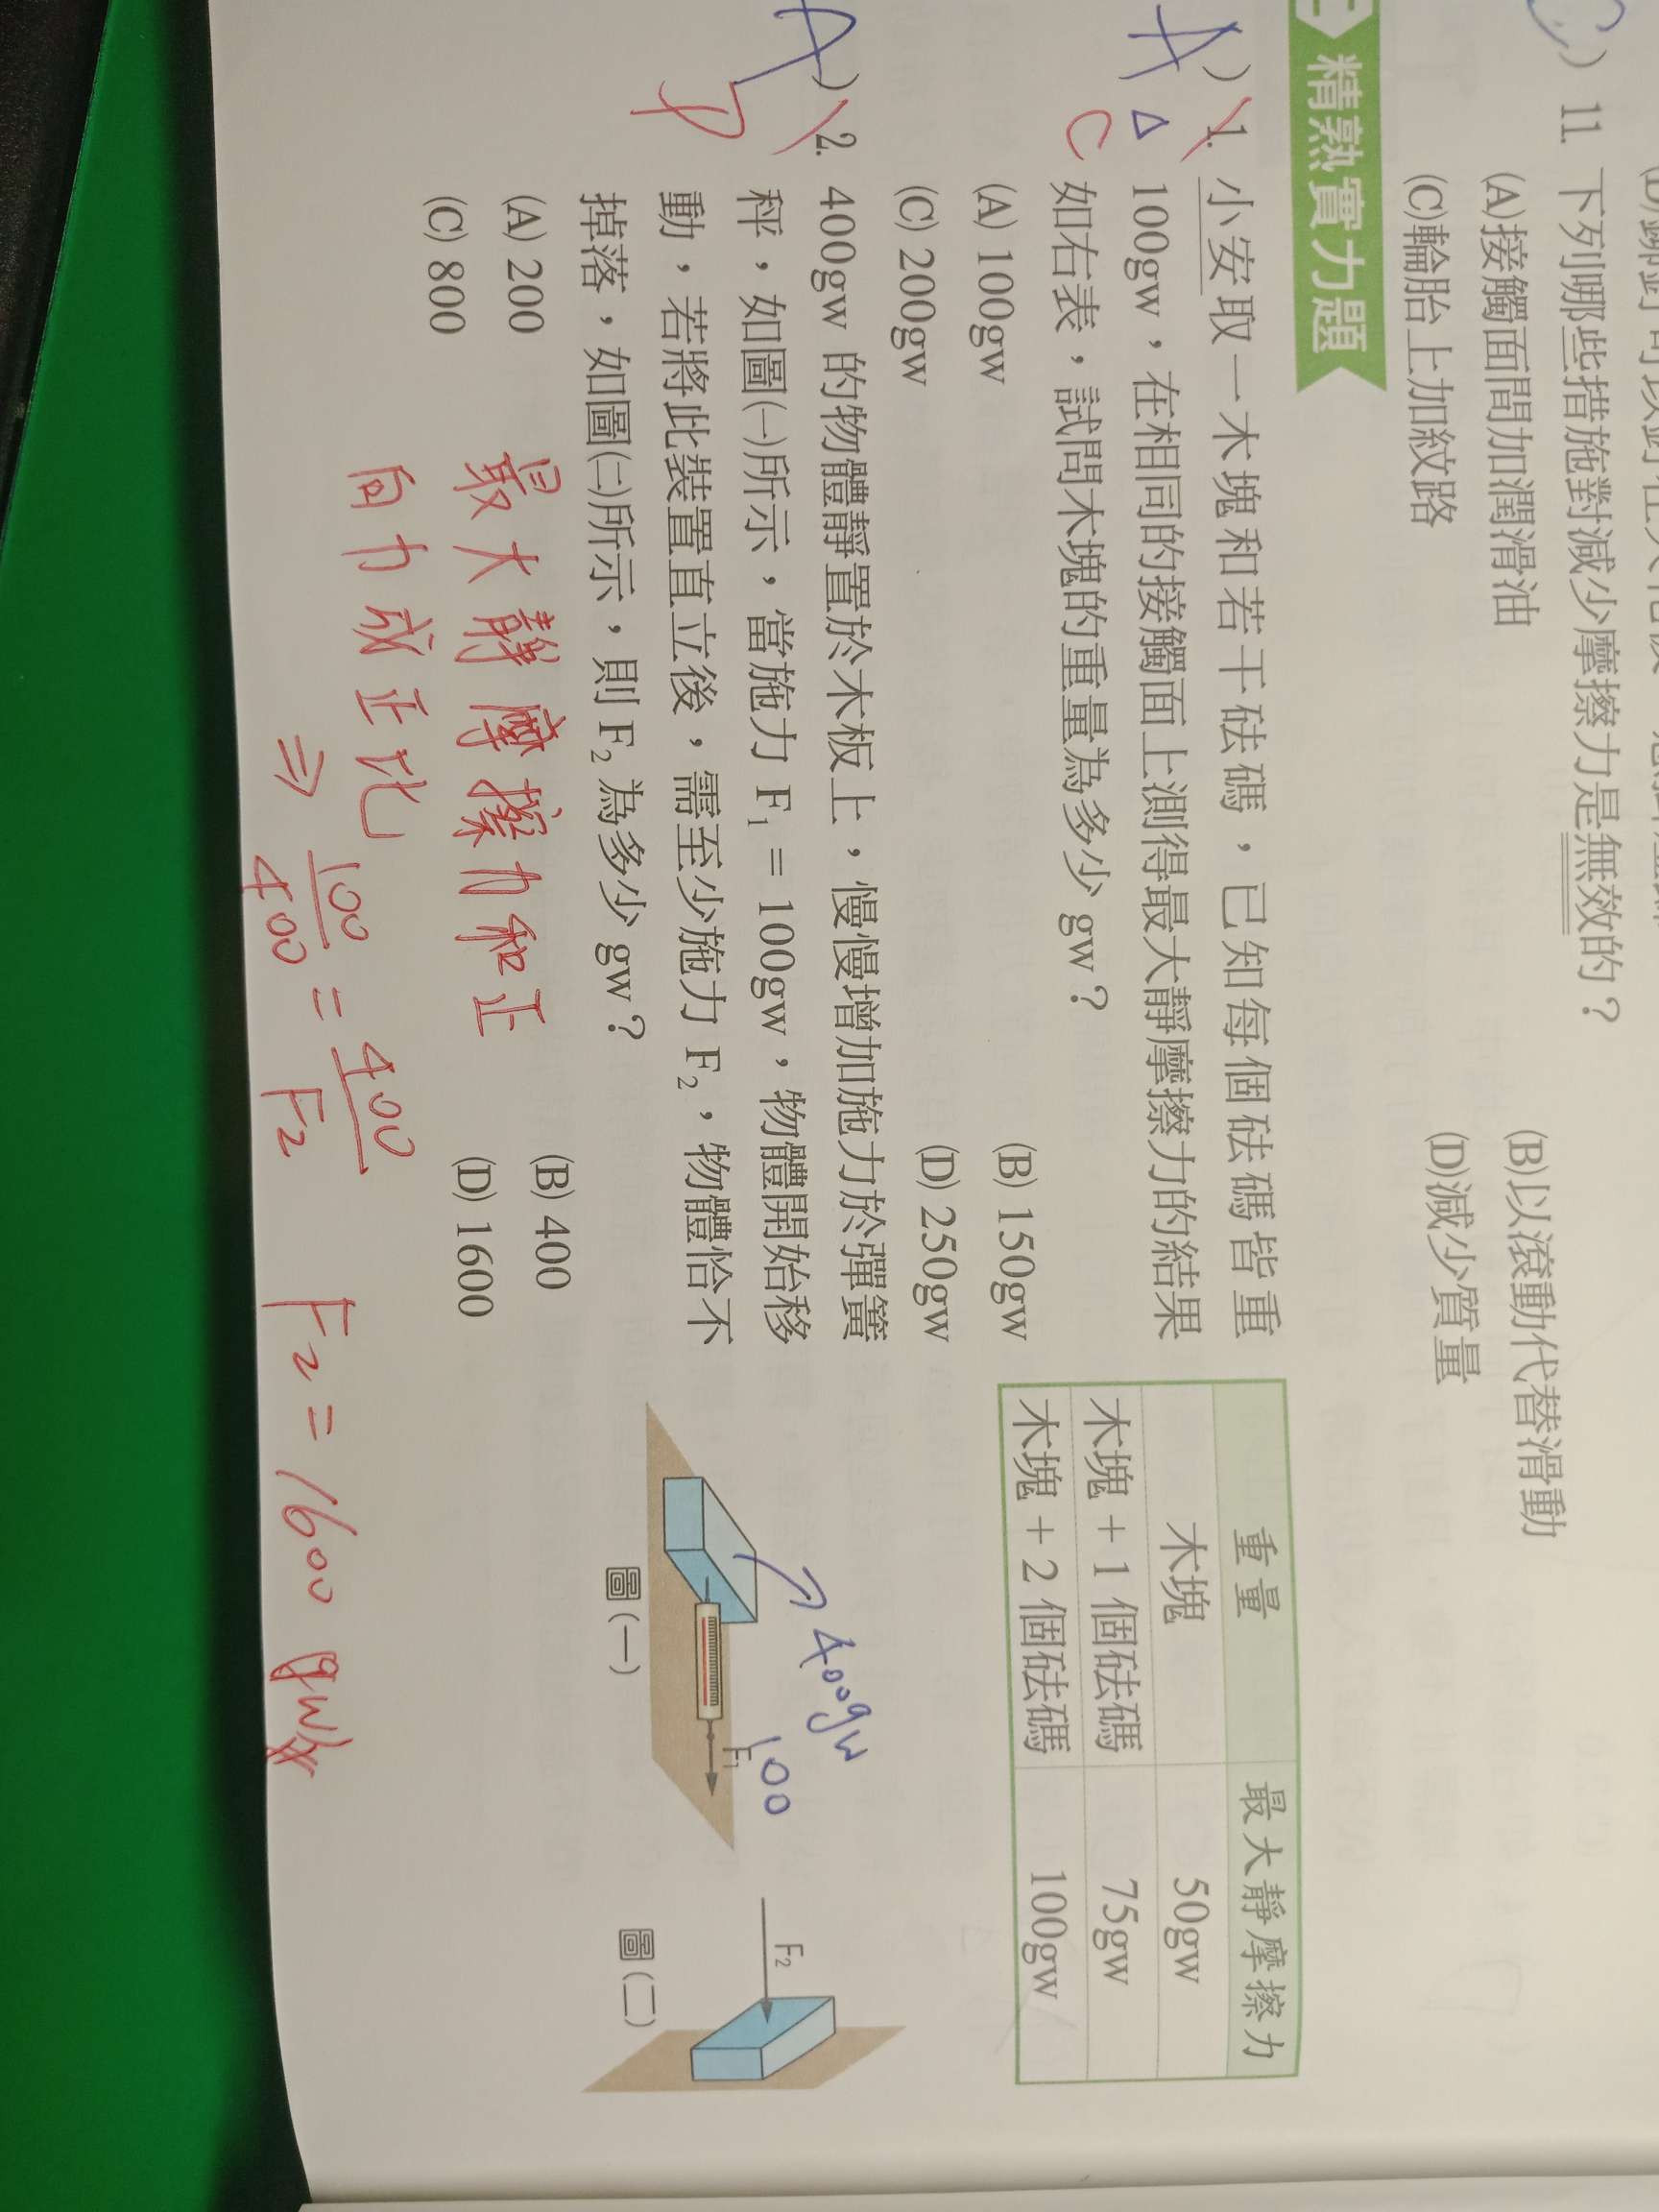 11. 下列哪些措施對減少摩擦力是無效的？
(A)接觸面間加潤滑油
(B)以滾動代替滑動
(C)輪胎上加紋路
(D)減少質量
精熟實力題
A
C
1. 小安取一木塊和若干砝碼，已知每個砝碼皆重
100gw，在相同的接觸面上測得最大靜摩擦力的結果
如右表，試問木塊的重量為多少 gw？
(A) 100gw
(B) 150gw
(C) 200gw
(D) 250gw
重量 最大靜摩擦力
木塊 50gw
木塊 + 1 個砝碼 75gw
木塊 + 2 個砝碼 100gw
A
D
2. 400gw 的物體靜置於木板上，慢慢增加施力於彈簧
秤，如圖(一)所示，當施力 F₁ = 100gw，物體開始移
動，若將此裝置直立後，需至少施力 F₂，物體恰不
掉落，如圖(二)所示，則 F₂ 為多少 gw？
(A) 200
(B) 400
(C) 800
(D) 1600
400gw
100
F₁
圖(一)
F₂
圖(二)
最大靜摩擦力和正
向力成正比
⇒ 100/400 = 400/F₂ F₂ = 1600 gw